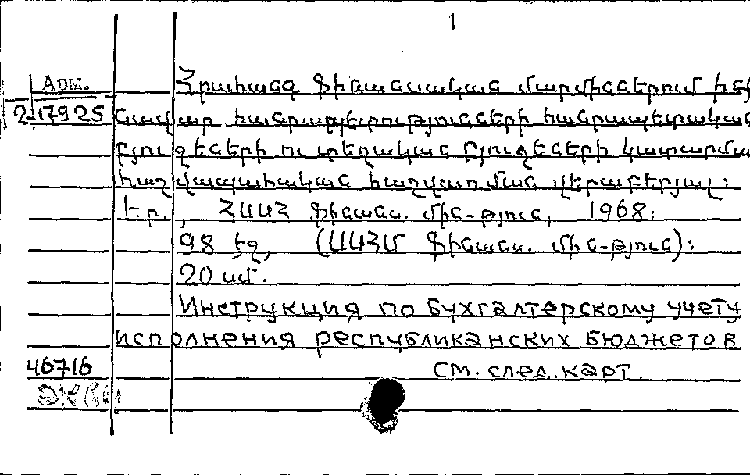 1
Арм. Հրահանգ ֆինանսական մարմիններում ինք
2-17925 նավար հանրապետությունների հանրապետական
բյուջեների ու տեղական բյուջեների կատարման
հաշվապահական հաշվառման վերաբերյալ:
Եր., ՀՍՍՀ ֆինանս. մին-թյուն, 1968:
98 էջ, (ՍՍՀՄ ֆինանս. մին-թյուն):
20 սմ.
Инструкция по бухгалтерскому учету
исполнения республиканских бюджетов
46716 см. след. карт